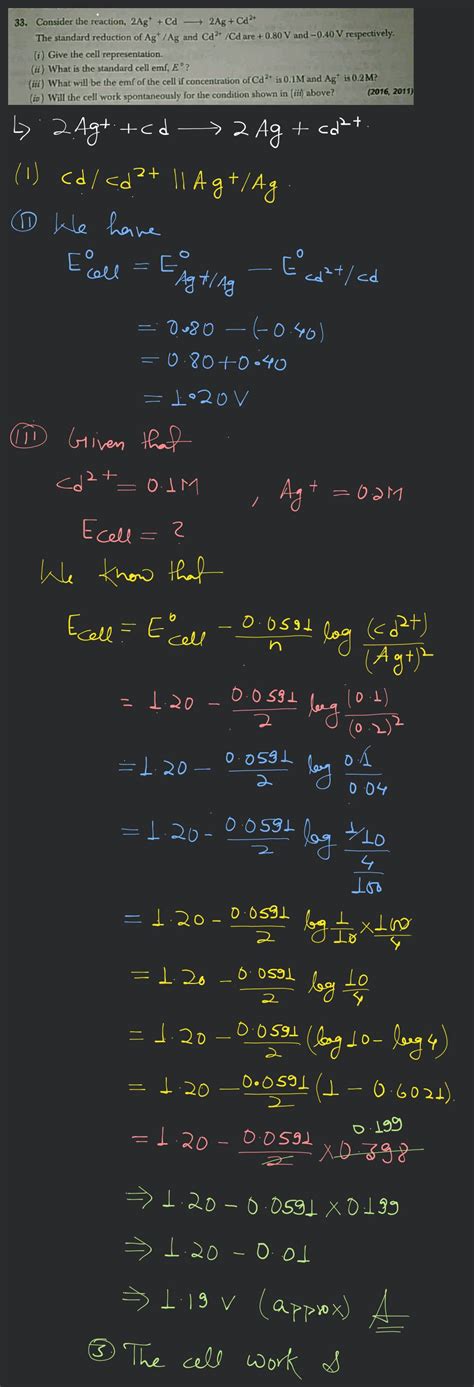 33. Consider the reaction, 2Ag⁺ + Cd ⟶ 2Ag + Cd²⁺
The standard reduction of Ag⁺/Ag and Cd²⁺/Cd are + 0.80 V and –0.40 V respectively.
(i) Give the cell representation.
(ii) What is the standard cell emf, E°?
(iii) What will be the emf of the cell if concentration of Cd²⁺ is 0.1M and Ag⁺ is 0.2M?
(iv) Will the cell work spontaneously for the condition shown in (iii) above? (2016, 2011)
↳ 2Ag+ + cd ⟶ 2Ag + cd²⁺.
(1) cd/cd²⁺ || Ag+/Ag.
(II) We have
E°cell = E°Ag+/Ag – E°cd²⁺/cd
= 0.80 – (–0.40)
= 0.80 + 0.40
= 1.20 V
(III) Given that
cd²⁺ = 0.1M , Ag⁺ = 0.2M
Ecell = ?
We know that
Ecell = E°cell – 0.0591/n log (cd²⁺)/(Ag+)²
= 1.20 – 0.0591/2 log (0.1)/(0.2)²
= 1.20 – 0.0591/2 log 0.1/0.04
= 1.20 – 0.0591/2 log 1/10/4/100
= 1.20 – 0.0591/2 log 1/10 × 100/4
= 1.20 – 0.0591/2 log 10/4
= 1.20 – 0.0591/2 (log 10 – log 4)
= 1.20 – 0.0591/2 (1 – 0.6021).
0.199
= 1.20 – 0.0591/2 × 0.398
⇒ 1.20 – 0.0591 × 0.199
⇒ 1.20 – 0.01
⇒ 1.19 V (approx) A
The cell work S